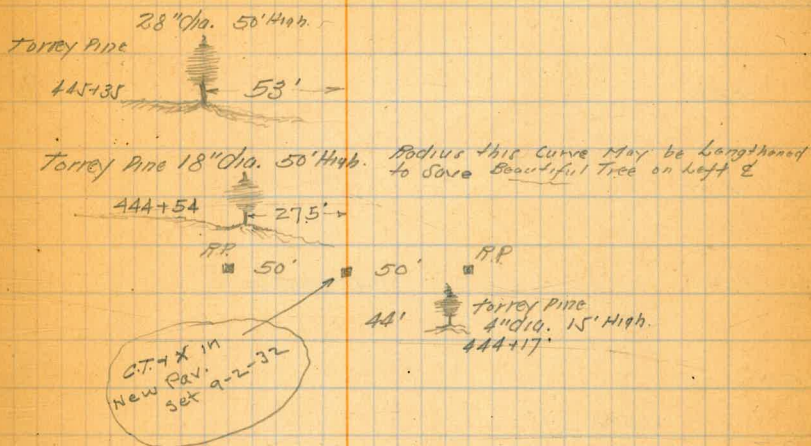 28" Dia. 50' High.
Torrey Pine
445+35
53'
Torrey Pine 18" Dia. 50' High.
Radius this Curve May be Langthaned
to Save Beautiful Tree on Left ⅊
444+54
27.5'
R.P.
50'
50'
R.P.
44'
Torrey Pine
4" dia. 15' High.
444+17
C.T. + X in
New Pav.
set 9-2-32